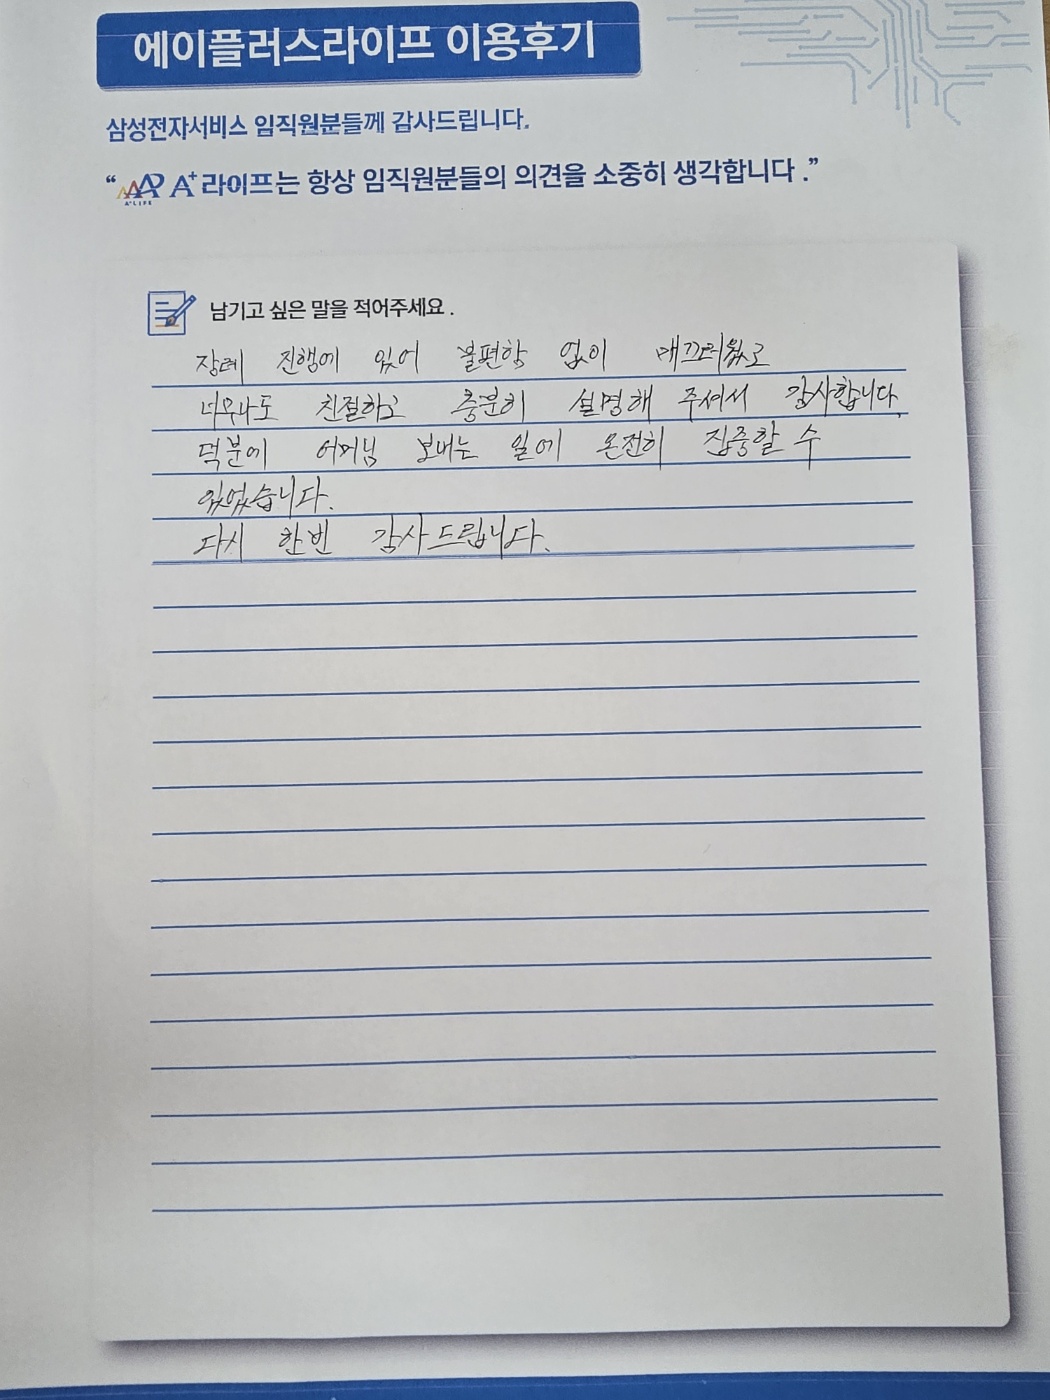 에이플러스라이프 이용후기
삼성전자서비스 임직원분들께 감사드립니다.
“ A+ LIFE A+ 라이프는 항상 임직원분들의 의견을 소중히 생각합니다 .”
남기고 싶은 말을 적어주세요 .
장례 진행에 있어 불편함 없이 매끄러웠고
너무나도 친절하고 충분히 설명해 주셔서 감사합니다.
덕분에 어머님 보내는 일에 온전히 집중할 수
있었습니다.
다시 한번 감사드립니다.